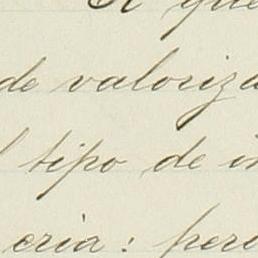 A que
de valoriza
l tipo de in
eria: pero